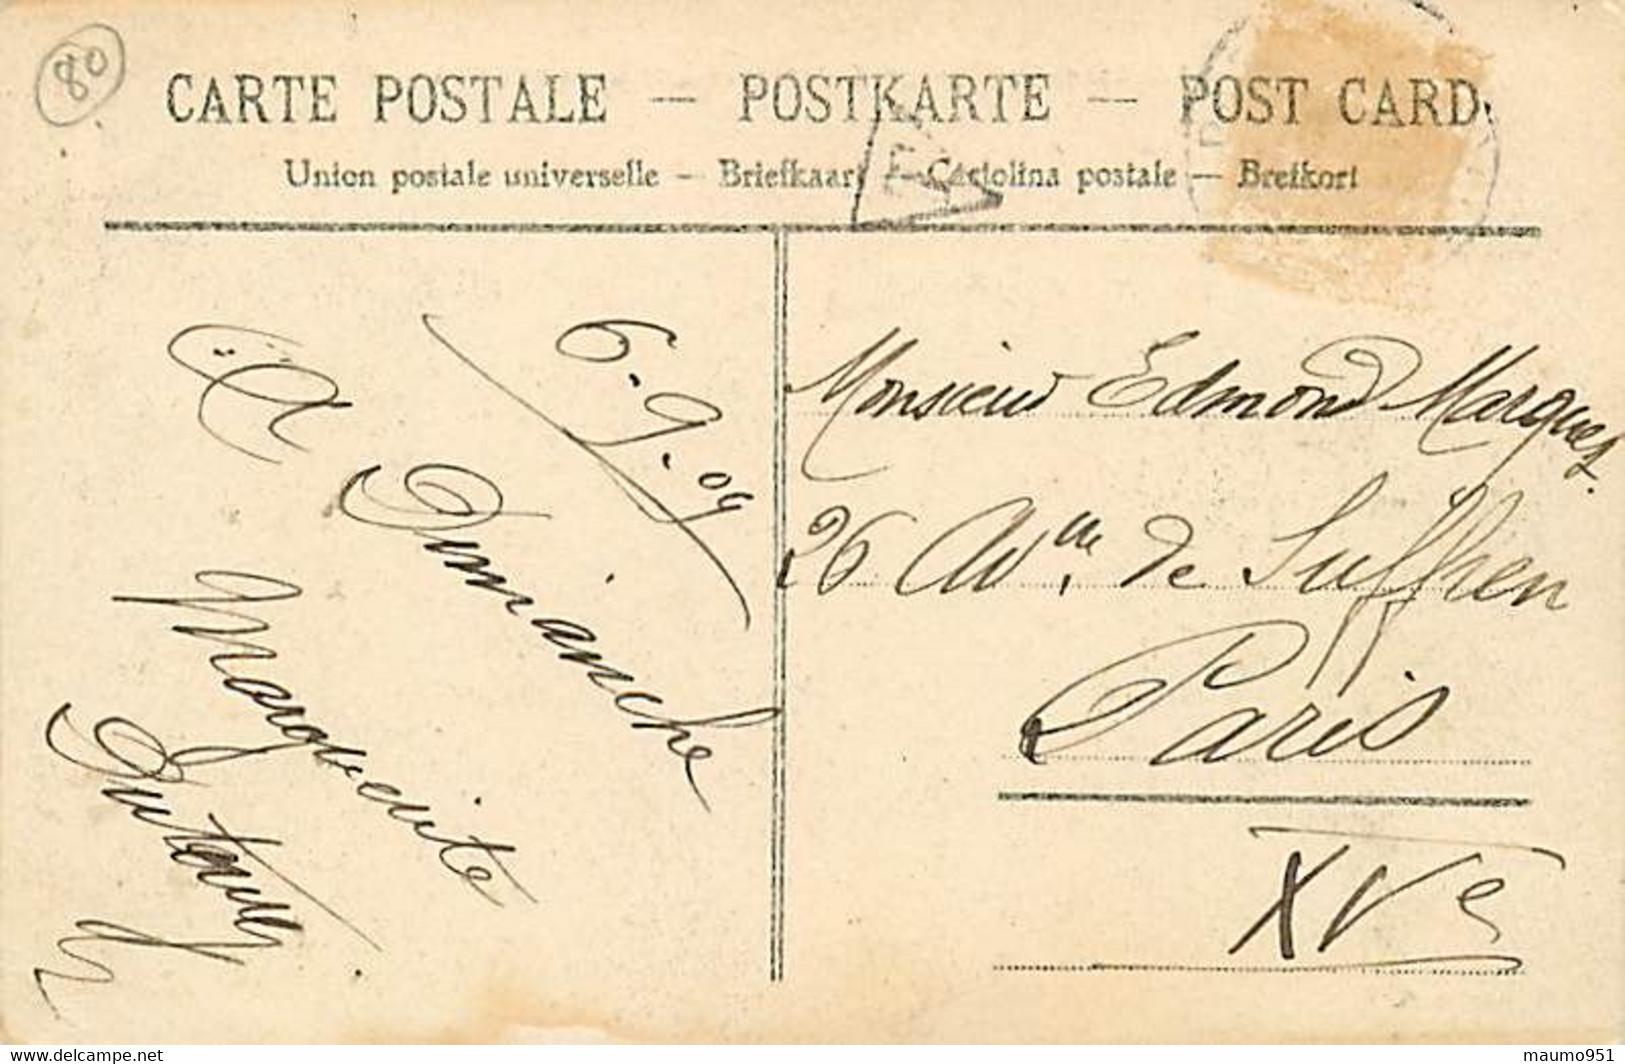 80
CARTE POSTALE — POSTKARTE — POST CARD
Union postale universelle – Briefkaart – Cartolina postale – Brefkort
6-9-09
A Dimanche
Marguerite
Monsieur Edmond Marques
26 Avue de Suffren
Paris
XVe
maumo951